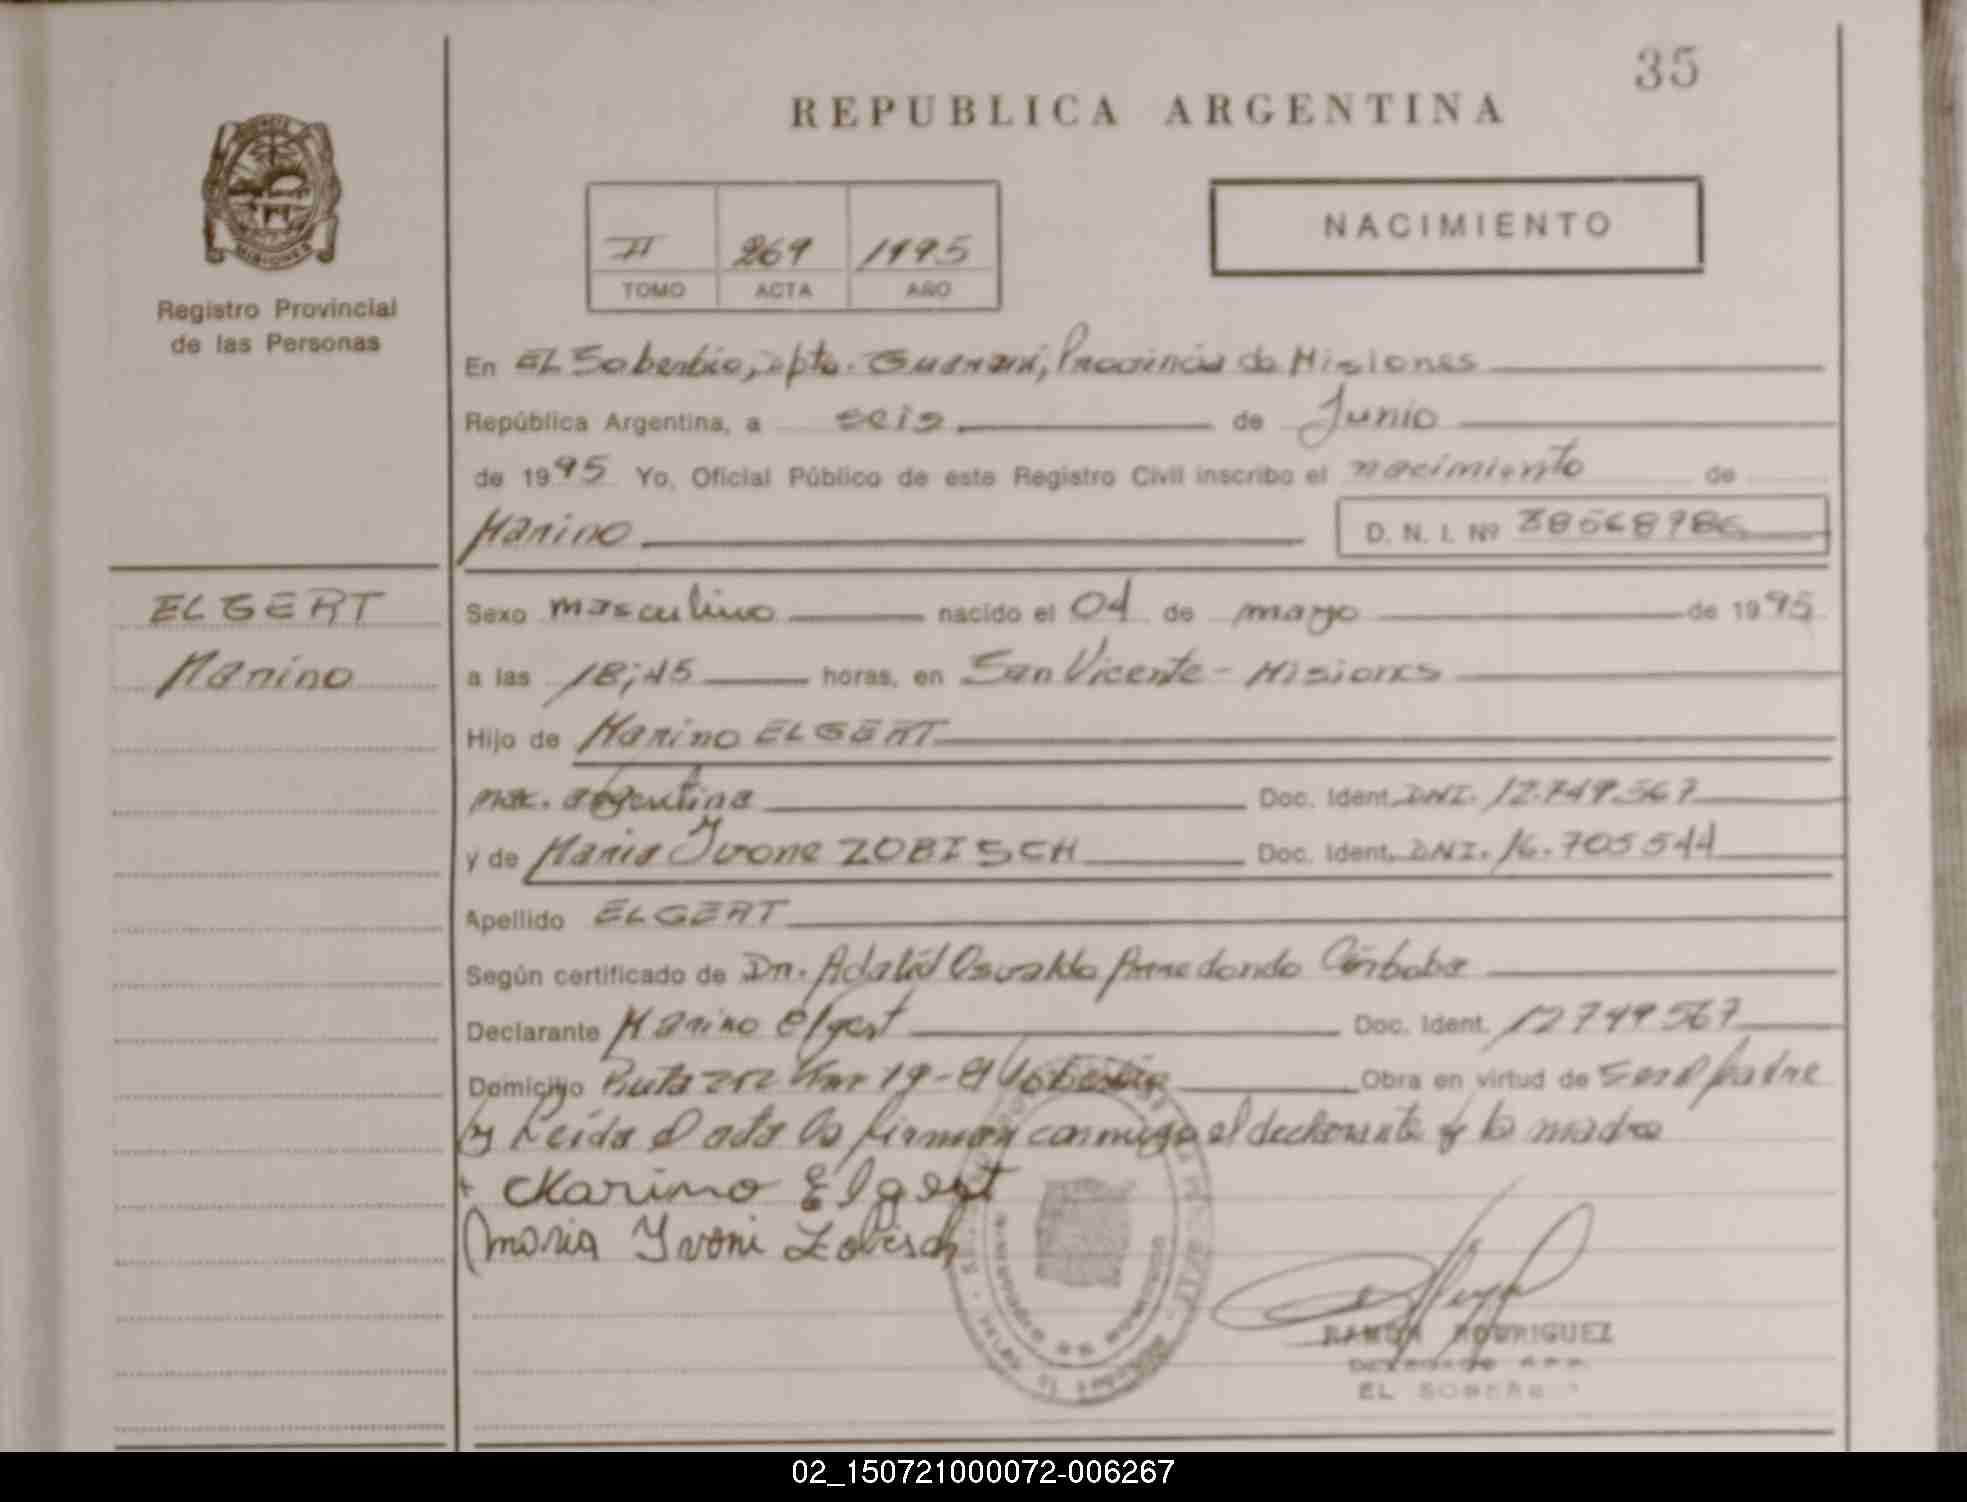 35
REPUBLICA ARGENTINA
MISIONES
Registro Provincial
de las Personas
II 269 1995
TOMO ACTA AÑO
NACIMIENTO
En EL Soberbio, dpto. Guaraní, Provincia de Misiones
República Argentina, a seis de Junio
de 1995 Yo, Oficial Público de este Registro Civil inscribo el nacimiento de
Marino D. N. I. Nº 38568786
ELGERT
Marino
Sexo masculino nacido el 04 de mayo de 1995
a las 18;45 horas, en San Vicente - Misiones
Hijo de Marino ELGERT
nac. argentina Doc. Ident. DNI. 12.749.567
y de Maria Ivone ZOBISCH Doc. Ident. DNI. 16.705544
Apellido ELGERT
Según certificado de Dr. Adalid Osvaldo Arredondo Córdoba
Declarante Marino Elgert Doc. Ident. 12749567
Domicilio Ruta 212 Km 19 - El Soberbio Obra en virtud de ser el padre
y Leída el acta la firman conmigo el declarante y la madre
Marino Elgert
Maria Ivoni Zobisch
RAMON RODRIGUEZ
EL
02_150721000072-006267